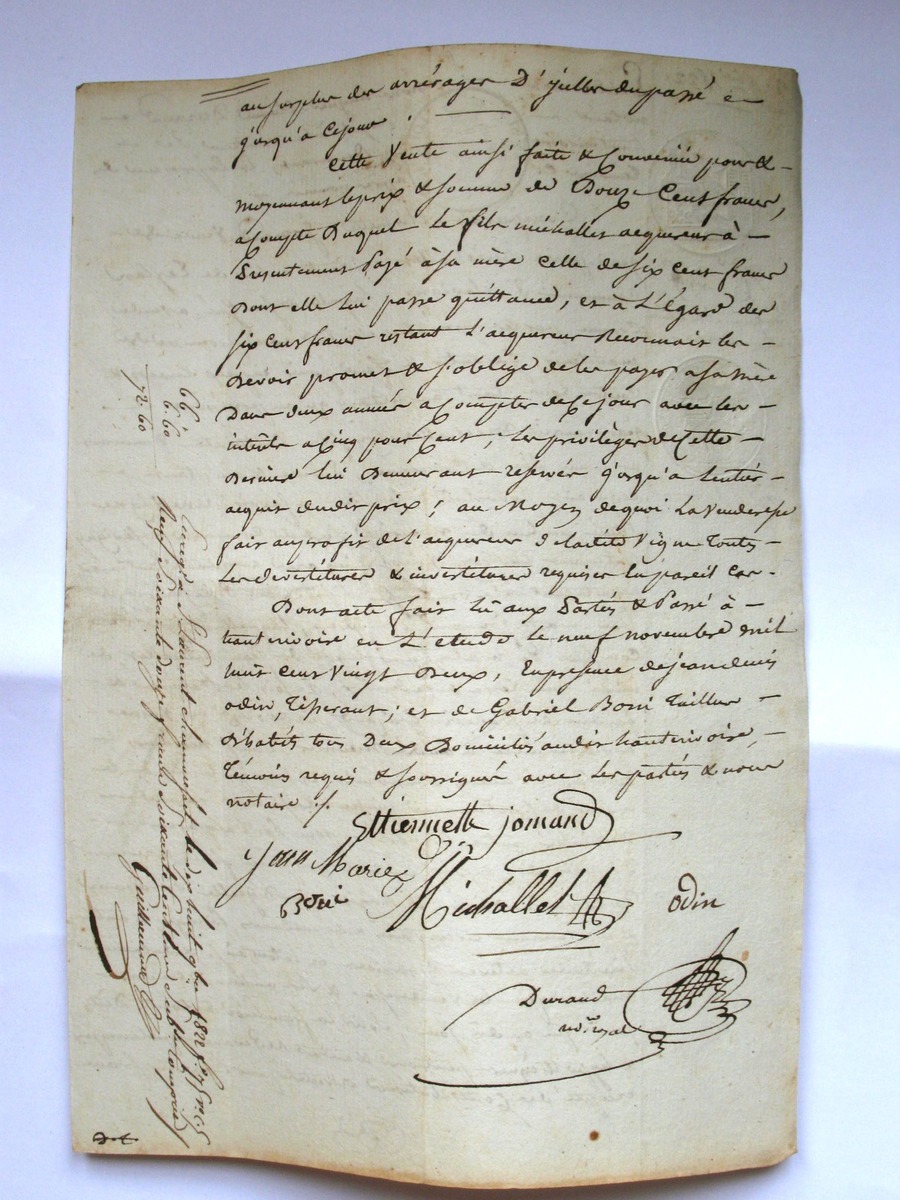 au surplus des arrérages D'jcelles du passé &
jusqu'a Cejour.
Cette Vente ainsi faite & Convenüe pour &
moyennant le prix & somme de Douze Cent francs,
acompte Duquel le fils michallet acquereur à
Presentement Payé à sa mère Celle de six Cent francs
Dont elle lui passe quittance, et à L'Egard des
six Cent francs restant L'acquereur Reconnait les
Devoir promet & s'oblige de les payer a sa mère
Dans deux années a Compter de Cejour avec les
intérêts a Cinq pour Cent; les privilèges de Cette
Dernière lui Demeurant reservés jusqu'a Lentier
acquit dudit prix; au Moyen dequoi La Venderesse
fait au profit de l'acquereur de ladite Vigne Toutes
Les devestitures & investitures requises En pareil Cas.
Dont acte fait lû aux Parties & Passé à
hauterivoire en L'etude le neuf novembre mil
huit Cent Vingt Deux, En presence de jean denis
odin, Tisserant; et de Gabriel Boni Tailleur
D'habits tous Deux Domiciliés audit hauterivoire,
Témoins requis & soussignés avec Les parties & nous
notaire ./.
Ettiennette jomand
Jean Marie
Michallet
Boni
odin
Durand
no.re royal
66"
6.60
72.60
Enreg.é a S.t Laurent chamousset le dix huit 9bre 1822 f.°
Reçu Soixante douze francs Soixante Cent. Subv.on Comprise
Guillaumet